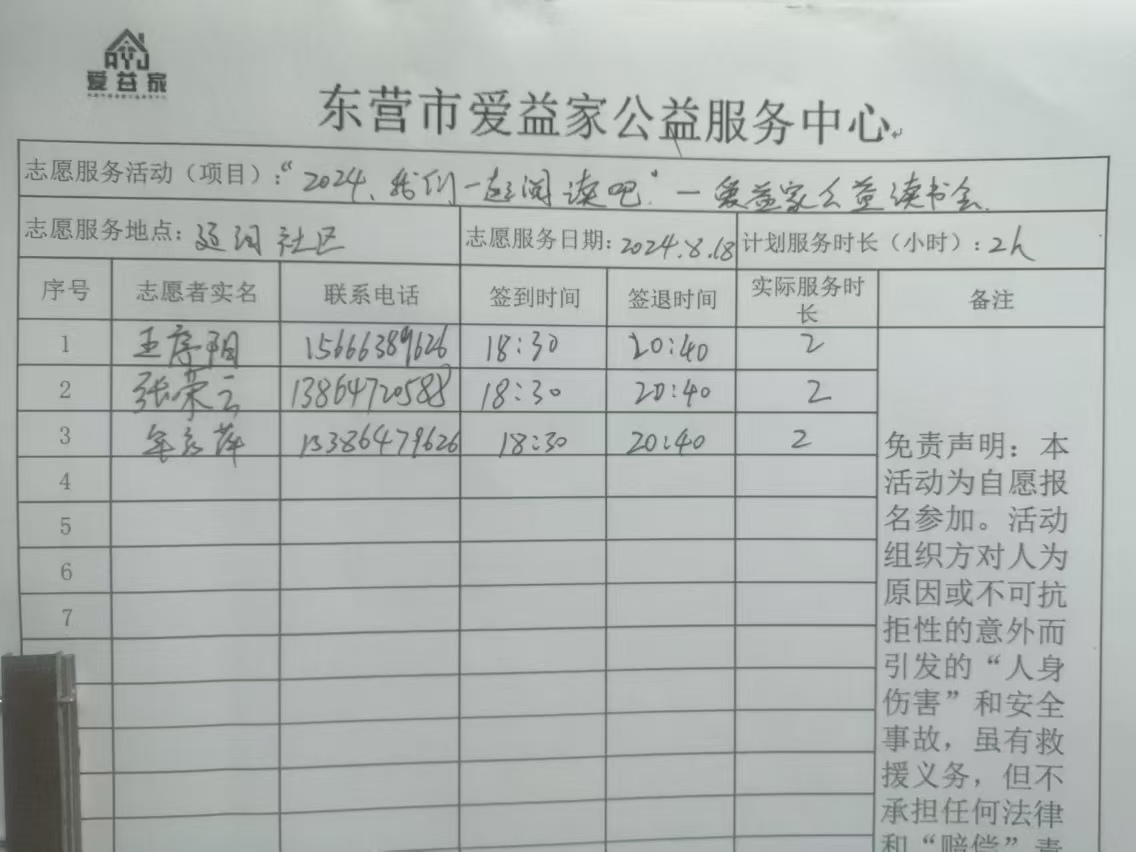 爱益家
东营市爱益家公益服务中心
志愿服务活动（项目）：“2024、我们一起阅读吧”—爱益家公益读书会
志愿服务地点：辽河社区 志愿服务日期：2024.8.18 计划服务时长（小时）：2h
序号 志愿者实名 联系电话 签到时间 签退时间 实际服务时长 备注
1 王序阳 15666389626 18:30 20:40 2
2 张荣云 13864720588 18:30 20:40 2
3 13386479626 18:30 20:40 2
4
5
6
7
免责声明：本
活动为自愿报
名参加。活动
组织方对人为
原因或不可抗
拒性的意外而
引发的“人身
伤害”和安全
事故，虽有救
援义务，但不
承担任何法律
和“赔偿”责